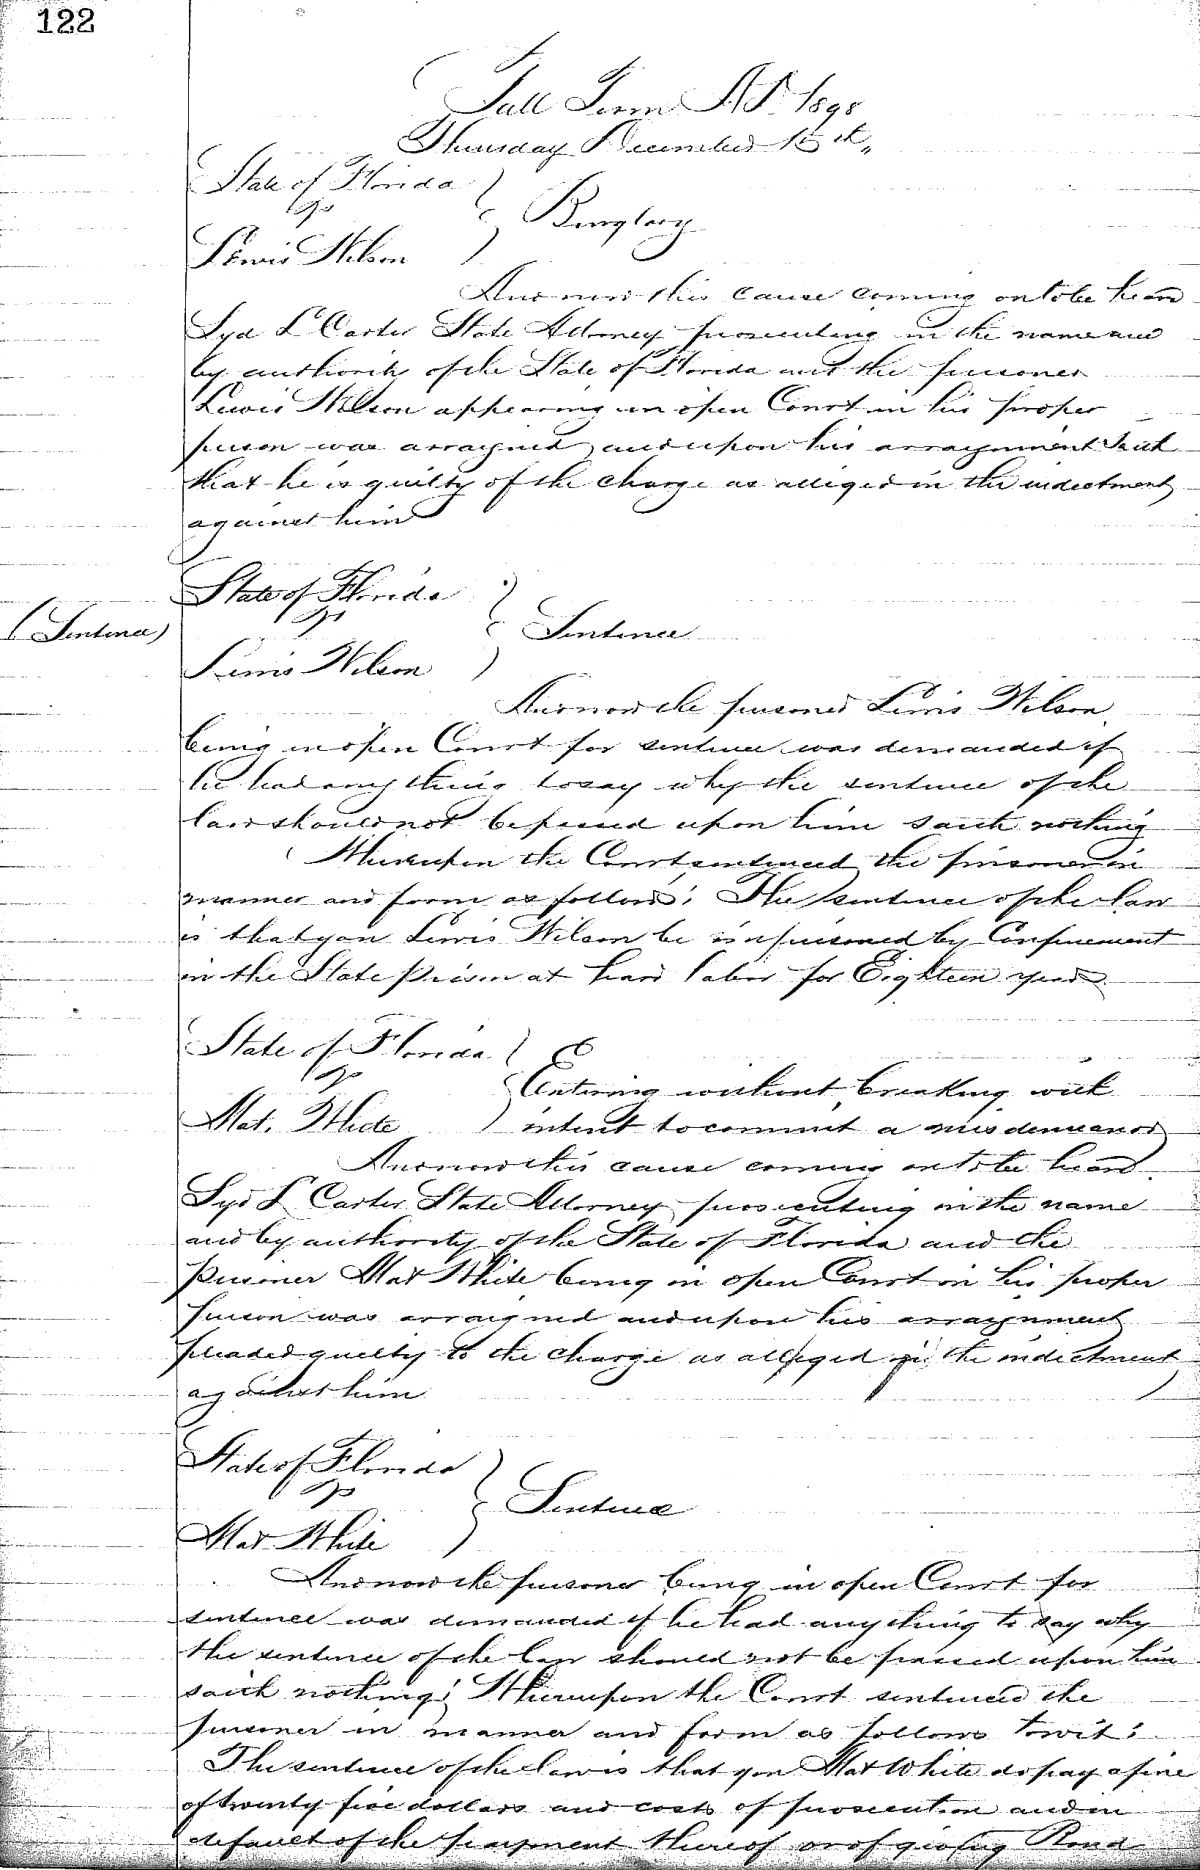 122
Fall Term A.D. 1898
Thursday December 15th,
State of Florida
vs
Burglary
Lewis Wilson
And now this cause coming on to be heard
Syd L Carter State Attorney prosecuting in the name and
by authority of the State of Florida and the prisoner
Lewis Wilson appearing in open Court in his proper
person was arraigned and upon his arraignment saith
that he is guilty of the charge as alleged in the indictment
against him
State of Florida
vs
(Sentence)
Sentence
Lewis Wilson
And now the prisoner Lewis Wilson
being in open Court for sentence was demanded if
he had any thing to say why the sentence of the
law should not be passed upon him saith nothing
Whereupon the Court sentenced the prisoner in
manner and form as follows: The sentence of the law
is that you Lewis Wilson be imprisoned by Confinement
in the State Prison at hard labor for Eighteen years
State of Florida
vs
Entering without breaking with
Mat. White
intent to commit a misdemeanor
And now this cause coming on to be heard
Syd L Carter State Attorney prosecuting in the name
and by authority of the State of Florida and the
Prisoner Mat White being in open Court in his proper
person was arraigned and upon his arraignment
pleaded guilty to the charge as alleged in the indictment
against him
State of Florida
vs
Sentence
Mat White
And now the prisoner being in open Court for
sentence was demanded if he had any thing to say why
the sentence of the law should not be passed upon him
saith nothing; Whereupon the Court sentenced the
prisoner in manner and form as follows towit:
The sentence of the law is that you Mat White do pay a fine
of twenty five dollars and costs of prosecution and in
default of the payment thereof or of giving Bond